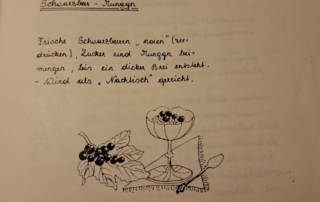 Schwarzbeer - Munggn
Frische Schwarzbeeren „noien" (zer-
drücken), Zucker und Munggn bei-
mengen, bis ein dicker Brei entsteht.
- Wird als „Nachtisch" gereicht.